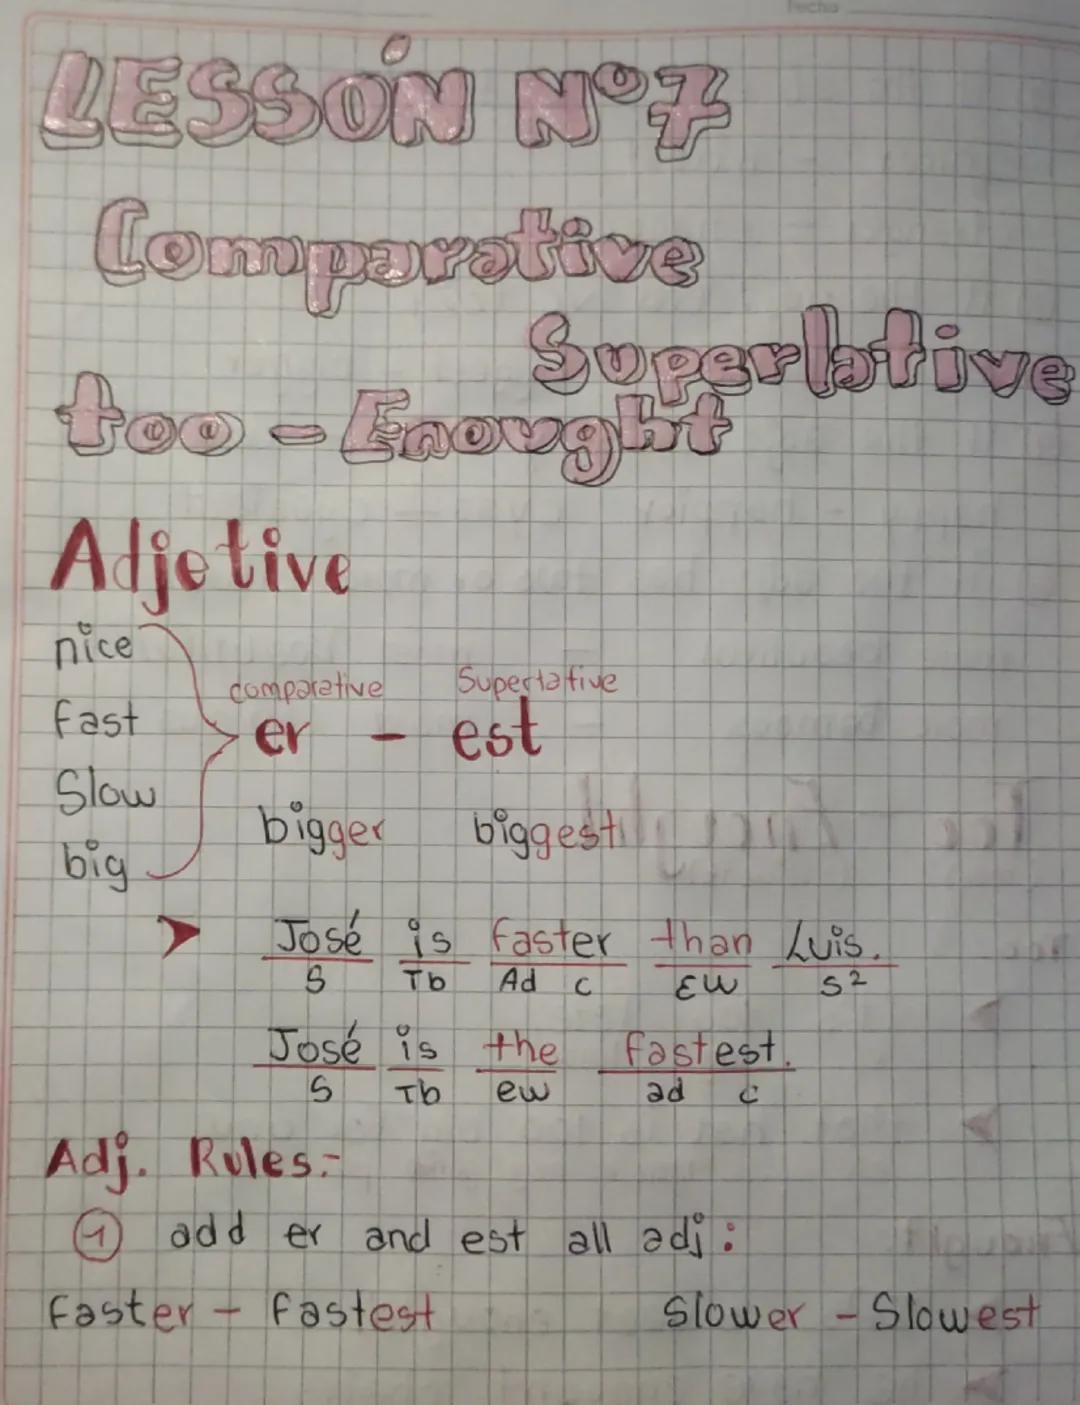 Fecha
LESSÓN Nº7
Comparative
Superlative
too - Enought
Adjetive
nice
fast
Slow
big
comparative Superlative
er - est
bigger biggest
José is faster than Luis.
S Tb Ad c EW S2
José is the fastest.
S Tb ew ad c
Adj. Rules.-
1 add er and est all adj:
Faster - fastest Slower - Slowest